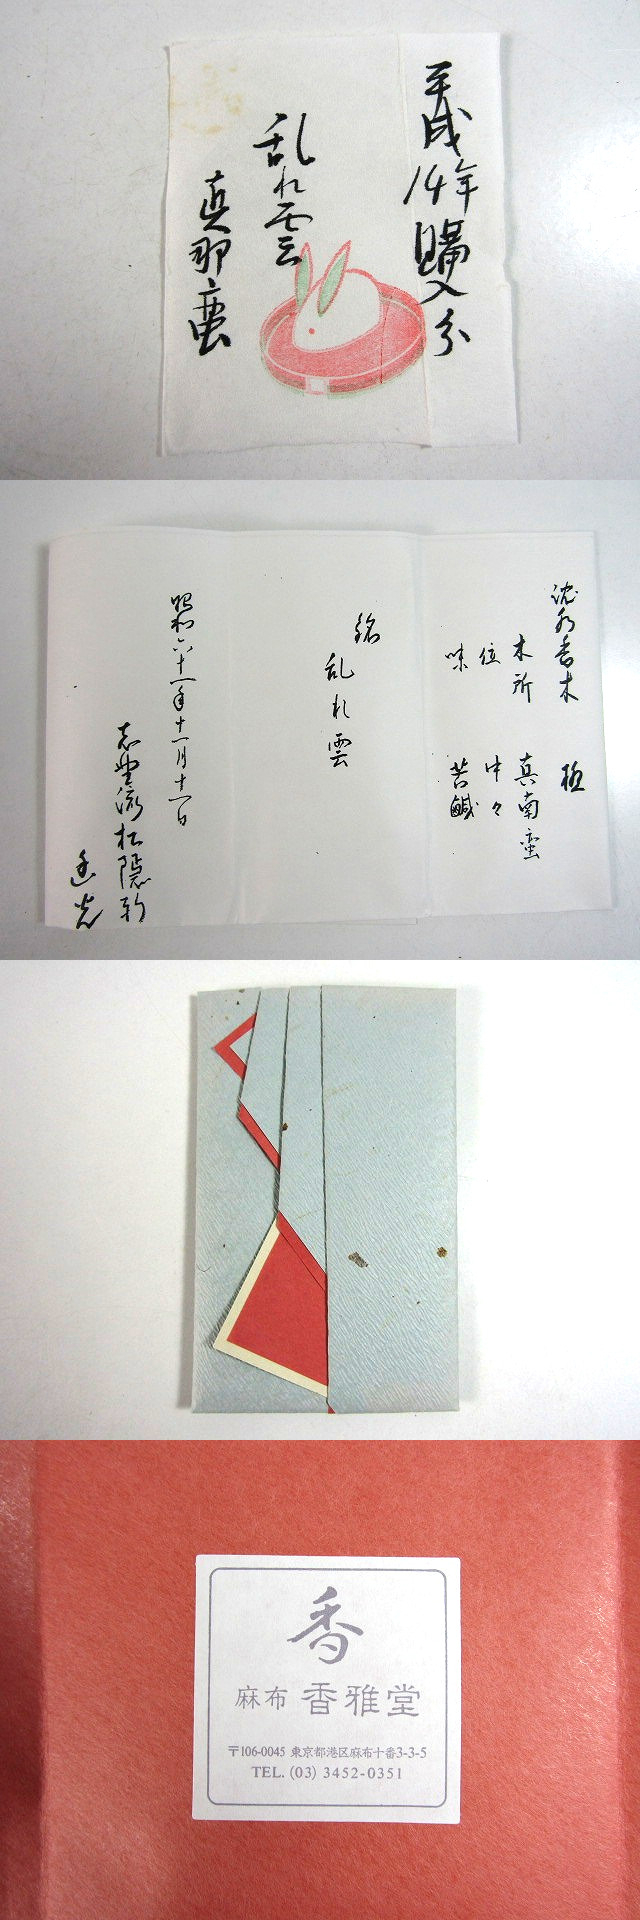 平成14年購入分
乱れ雲
真那蛮
沈水香木 極
木所 真南蛮
位 中々
味 苦鹹
銘
乱れ雲
昭和六十一年十一月十一日
志野流松隠軒
香
麻布 香雅堂
〒106-0045 東京都港区麻布十番3-3-5
TEL. (03) 3452-0351